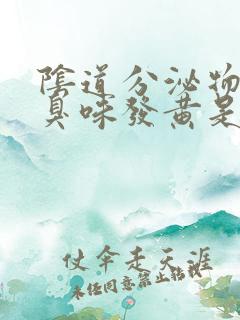 陰道分泌物
臭味發黃是
仗伞走天涯
未经同意禁止转载